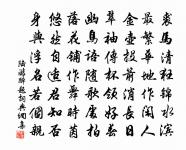 裘馬清狂錦水濱
最繁華地作閑人
金壺投箭消長日
翠袖傳杯領好春
幽鳥語隨歌處拍
落花鋪作舞時茵
悠然自適君知否
身與浮名若個親
陸游